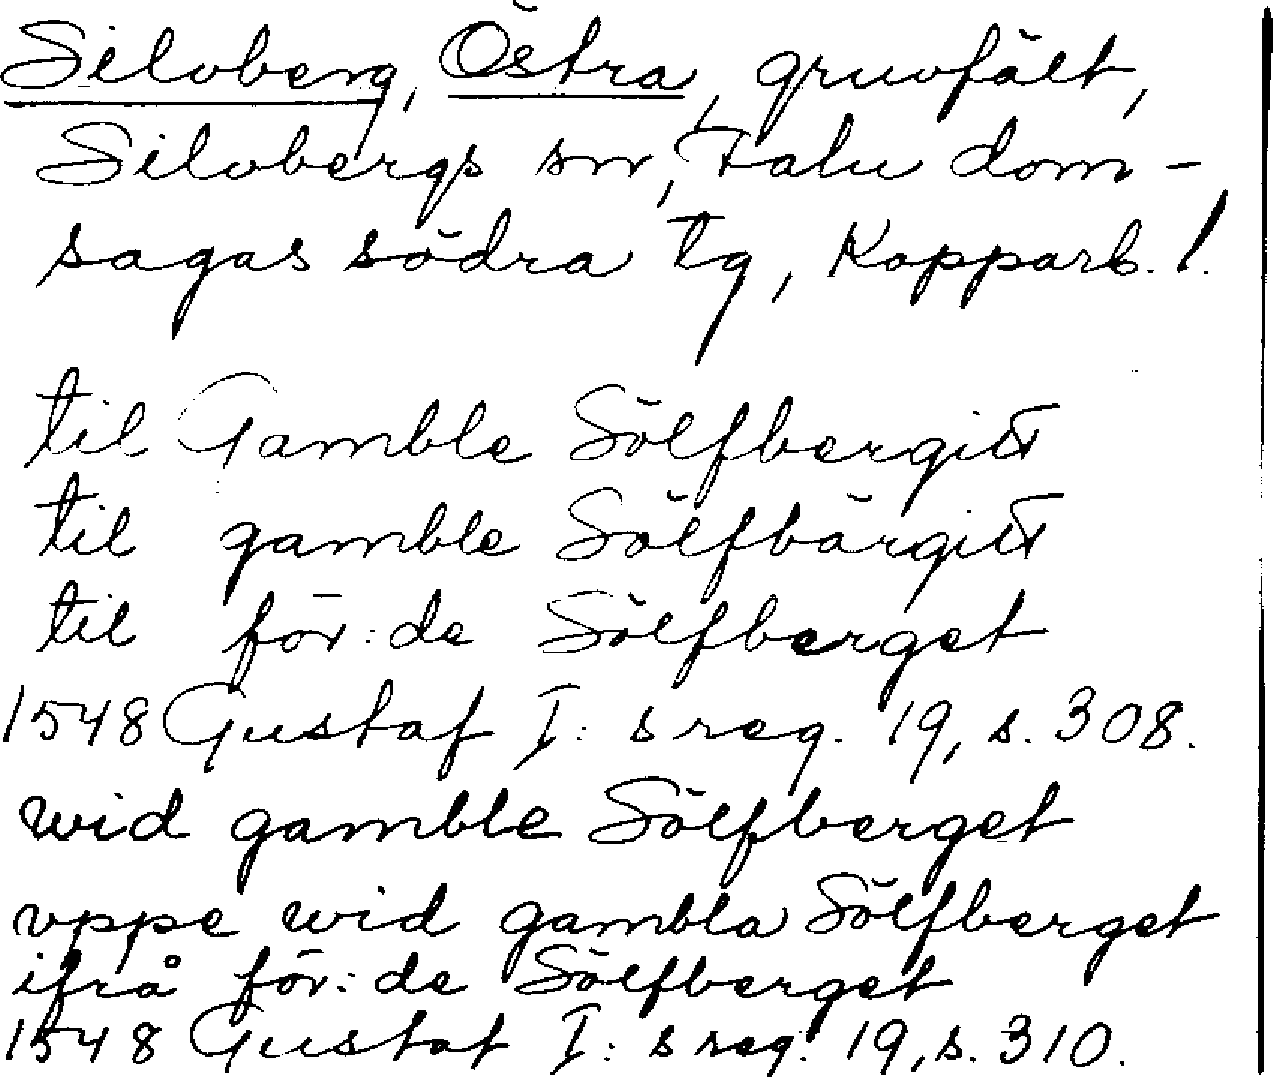 Silvberg, Östra, gruvfält,
Silvbergs sn, Falu dom-
sagas södra tg, Kopparb. l.
til Gamble Sölfbergitt
til gamble Sölfbärgitt
til för:de Sölfberget
1548 Gustaf I:s reg. 19, s. 308.
wid gamble Sölfberget
vppe wid gambla Sölfberget
ifrå för:de Sölfberget
1548 Gustaf I:s reg. 19, s. 310.